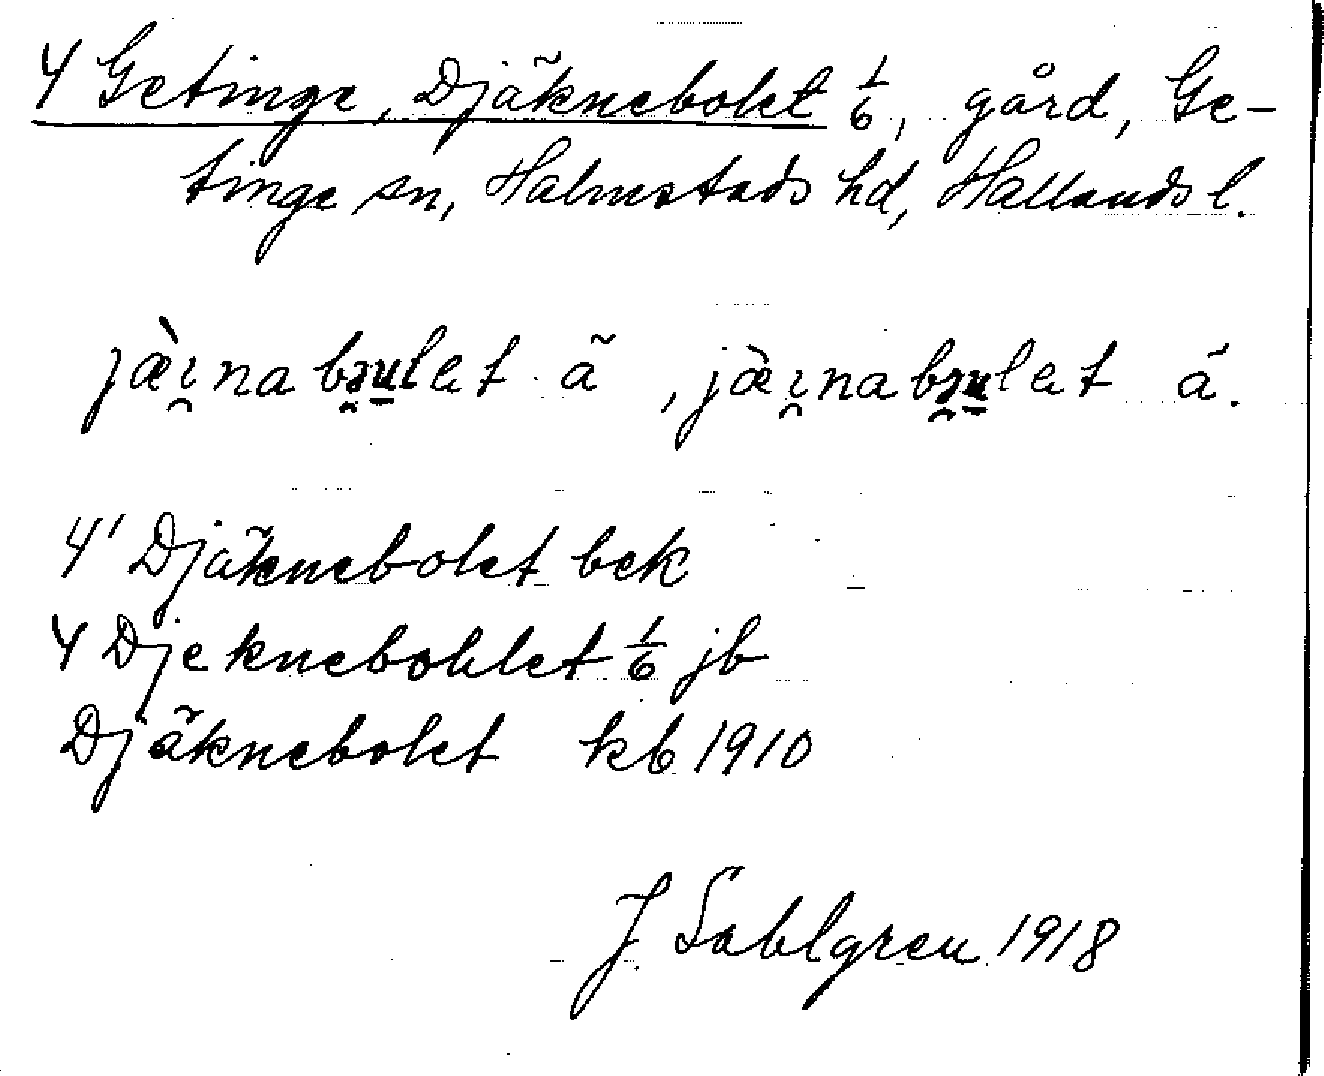 4 Getinge, Djäknebolet 1/6, gård, Ge-
tinge sn, Halmstads hd, Hallands l.
jæ̀ɪ̯nabə̯u̱let ã, jæ̀ɪ̯nabə̯u̱let á.
4' Djäknebolet bek
4 Djeknebohlet 1/6 jb
Djäknebolet kb 1910
J Sahlgren 1918